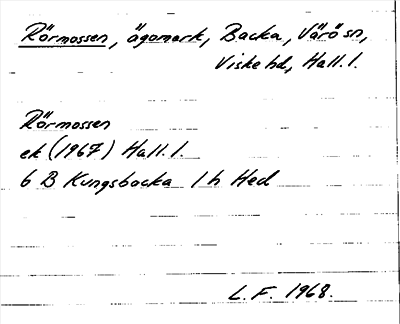 Rörmossen, ägomark, Backa, Värö sn,
Viske hd, Hall. l.
Rörmossen
ek (1967) Hall. l.
6 B Kungsbacka 1 h Hed
L. F. 1968.